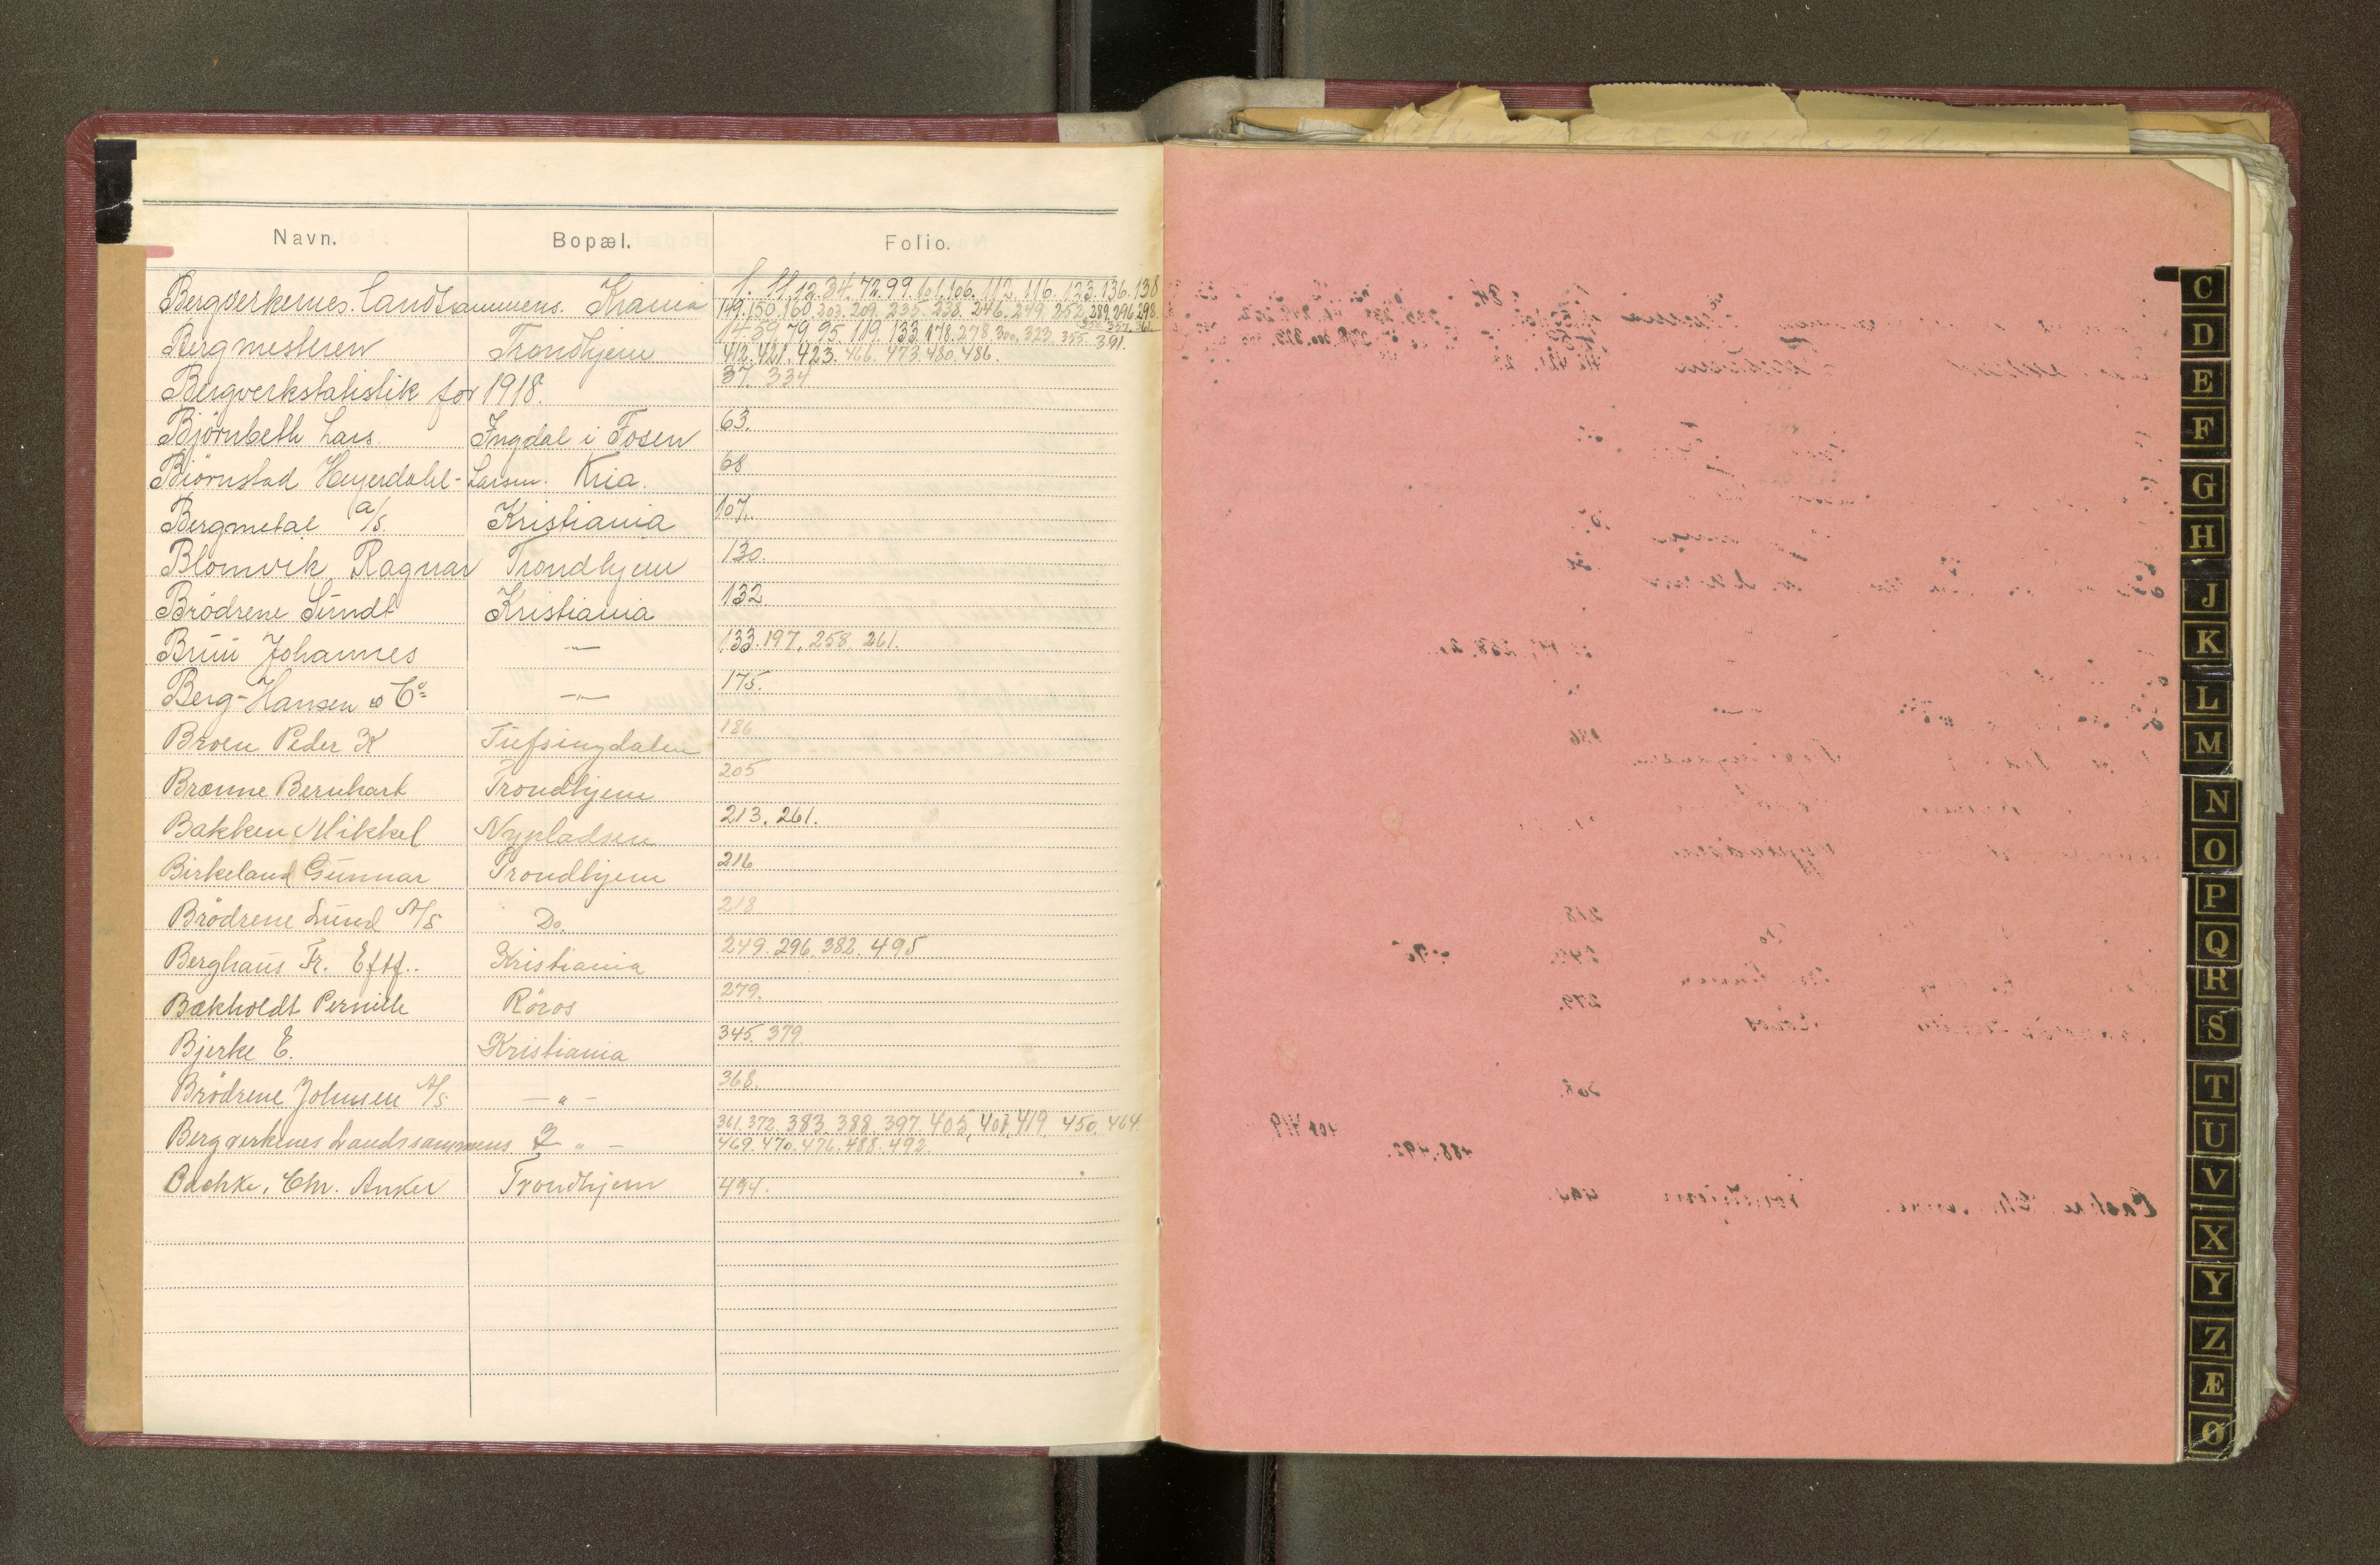 Navn. Bopæl. Folio.
Bergverkernes. landssammens. Krania 1. 11, 12. 34. 72. 99. 101. 106. 112. 116. 123. 136. 138
149. 150. 160. 203. 209. 235. 238. 246. 249. 252. 289. 296. 298.
Bergmesteren Trondhjem 14. 59. 79. 95. 119. 133. 178. 278. 300. 323. 355. 391.
357. 361.
412. 421. 423. 466. 473. 480. 486.
Bergverkstatistik for 1918. 37. 334
Björnbeth Lars. Ingdal i Fosen 63.
Björnstad Heyerdahl-Larsen. Kria. 68
Bergmetal a/s. Kristiania 107.
Blomvik Ragnar Trondhjem 130.
Brödrene Sundt Kristiania 132.
Bruu Johannes —"— 133. 197. 258. 261.
Berg-Hansen & Co —"— 175.
Broen Peder K Tufsingdalen 186
Brænne Bernhart Trondhjem 205
Bakken Mikkel Nypladsen 213. 261.
Birkeland Gunnar Trondhjem 216
Brödrene Lund A/S Do. 218
Berghaus Fr. Eftf.. Kristiania 249. 296. 382. 495
Bækholdt Pernille Röros 279.
Bjerke E. Kristiania 345. 379.
Brödrene Johnsen A/S — " — 368.
Bergverkenes Landssammens — " — 361. 372. 383. 388. 397. 403, 407, 419. 450. 464.
469. 470. 476. 488. 492.
Bachke, Chr. Anker Trondhjem 494.
C
D
E
F
G
H
J
K
L
M
N
O
P
Q
R
S
T
U
V
X
Y
Z
Æ
Ø